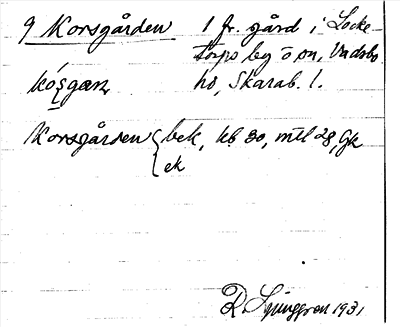 9 Korsgården 1 fr. gård i Locke-
torps by o sn, Vadsbo
hd, Skarab. l.
Korsgården { bek, kb 80, mtl 28, gk
ek
R. Ljunggren 1931